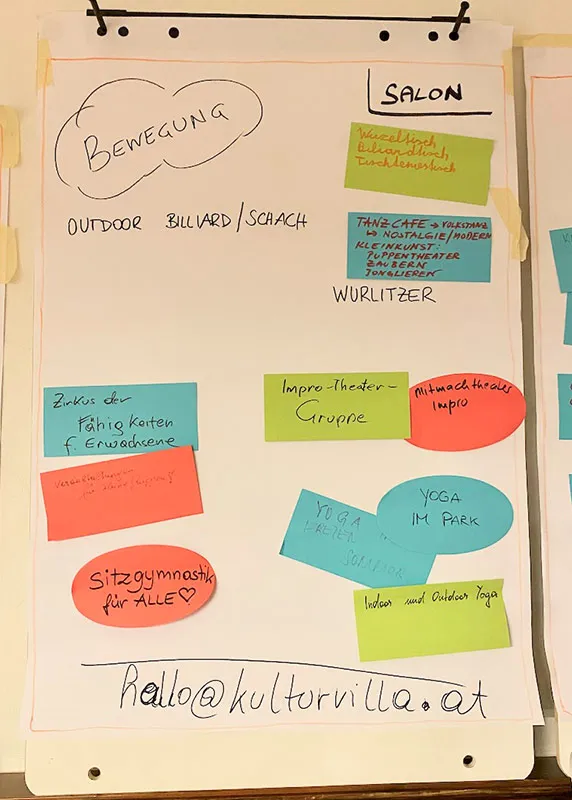 BEWEGUNG
OUTDOOR BILLIARD/SCHACH
SALON
Wuzeltisch
Billiardtisch
Tischtennistisch
TANZCAFE → VOLKSTANZ
↳ NOSTALGIE/MODERN
KLEINKUNST:
PUPPENTHEATER
ZAUBERN
JONGLIEREN
WURLITZER
Zirkus der
Fähigkeiten
f. Erwachsene
Sitzgymnastik
für ALLE♡
Impro-Theater-
Gruppe
Mitmachtheater
Impro
YOGA
IM PARK
YOGA
Indoor und Outdoor Yoga
hallo@kulturvilla.at